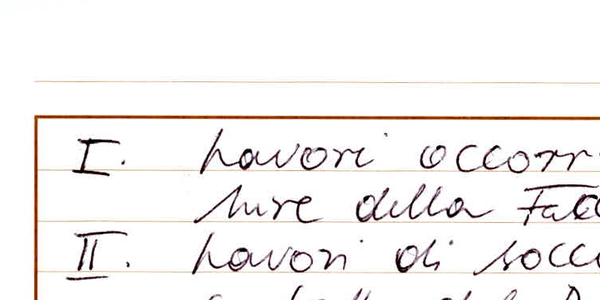 I. Lavori occorr
ture della Fac
II. Lavori di socc